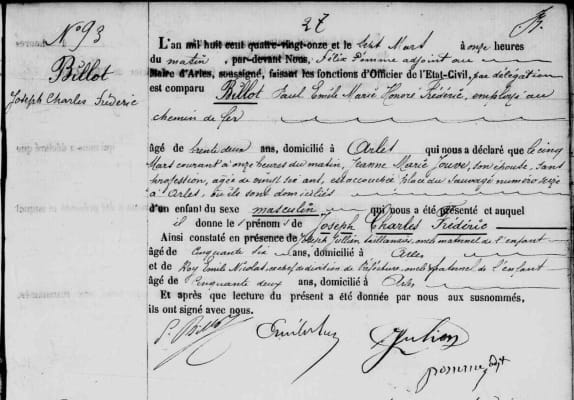 27
N° 93
Billot
Joseph Charles Frédéric
L'an mil huit cent quatre-vingt-onze et le Sept Mars à onze heures
du matin, par-devant Nous, Félix Pomme adjoint au
Maire d'Arles, soussigné, faisant les fonctions d'Officier de l'Etat-Civil, par délégation
est comparu Billot Paul Emile Marie Honoré Frédéric, employé au
chemin de fer
âgé de trente deux ans, domicilié à Arles qui nous a déclaré que le cinq
Mars courant à onze heures du matin, Jeanne Marie Jouve, son épouse, sans
profession, âgée de vingt six ans, est accouchée place du Sauvage numéro seize
à Arles, où ils sont domiciliés
d'un enfant du sexe masculin qui nous a été présenté et auquel
il donne les prénoms de Joseph Charles Frédéric
Ainsi constaté en présence de Joseph Jullian taillandier, oncle maternel de l'enfant
âgé de Cinquante six ans, domicilié à Arles
et de Roy Emile Nicolas, de Préfecture, oncle paternel de l'enfant
âgé de Cinquante deux ans, domicilié à Arles
Et après que lecture du présent a été donnée par nous aux susnommés,
ils ont signé avec nous.
P. Billot
Jullian
pomme adjt